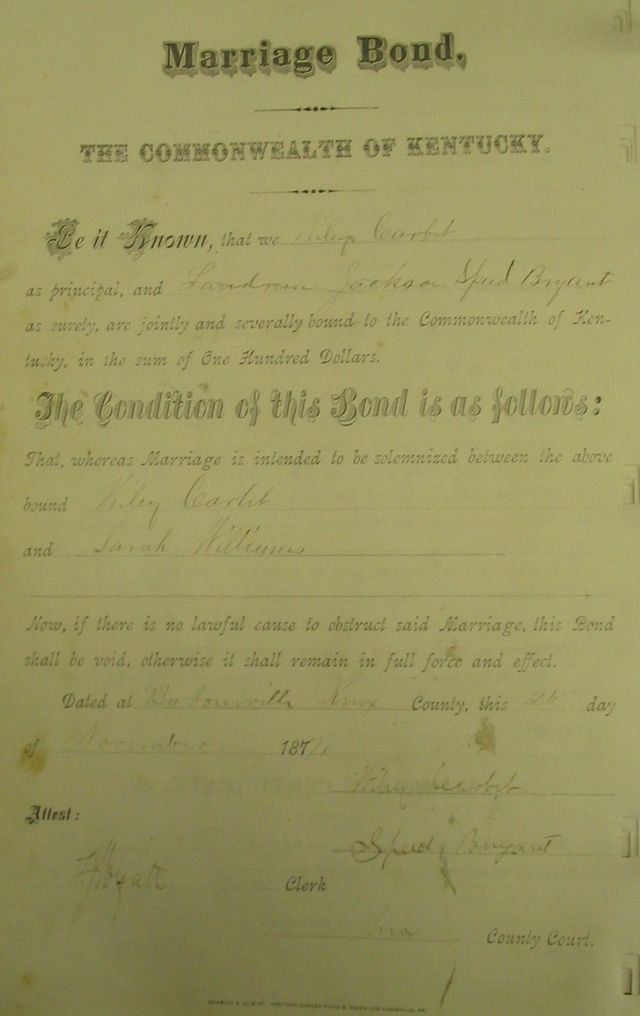 Marriage Bond,
THE COMMONWEALTH OF KENTUCKY.
Be it Known, that we Wiley Carbit
as principal, and Landrum Jackson Speed Bryant
as surety, are jointly and severally bound to the Commonwealth of Ken-
tucky, in the sum of One Hundred Dollars.
The Condition of this Bond is as follows:
That, whereas Marriage is intended to be solemnized between the above
bound Wiley Carbit
and Sarah Williams
Now, if there is no lawful cause to obstruct said Marriage, this Bond
shall be void, otherwise it shall remain in full force and effect.
Dated at Barbourville Knox County, this day
of November 187
Wiley Carbit
Attest:
Speed Bryant
Clerk
Knox County Court.